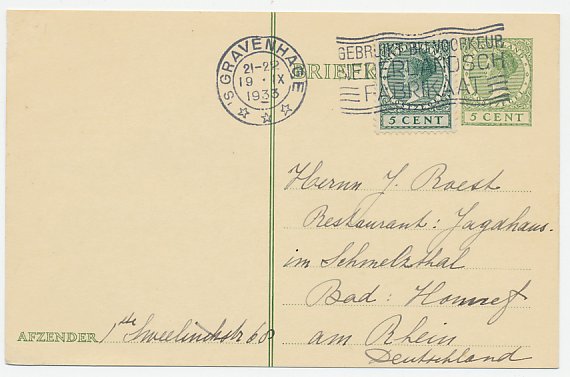 'S GRAVENHAGE
21-22
19 IX
1933
GEBRUIKT BIJ VOORKEUR
NEDERLANDSCH
FABRIKAAT
BRIEFK
5 CENT
5 CENT
Herrn J. Roest
Restaurant: Jagdhaus.
im Schmelzthal
Bad: Honnef
am Rhein
Deutschland
AFZENDER 1ste Sweelinckstr 68